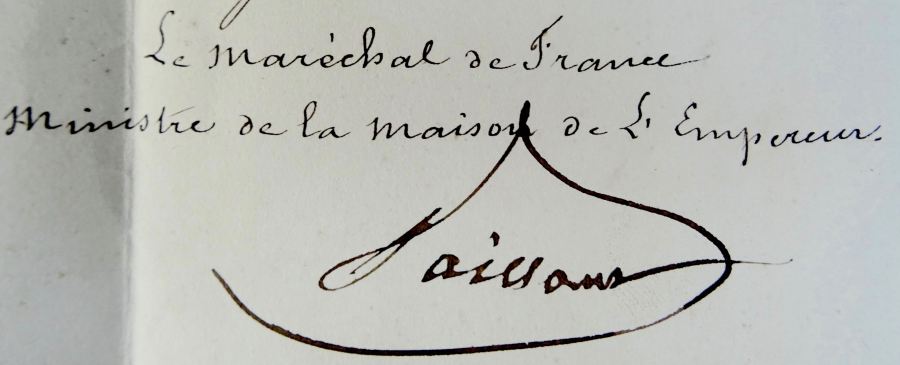 Le Maréchal de France
Ministre de la Maison de L'Empereur.
Vaillant